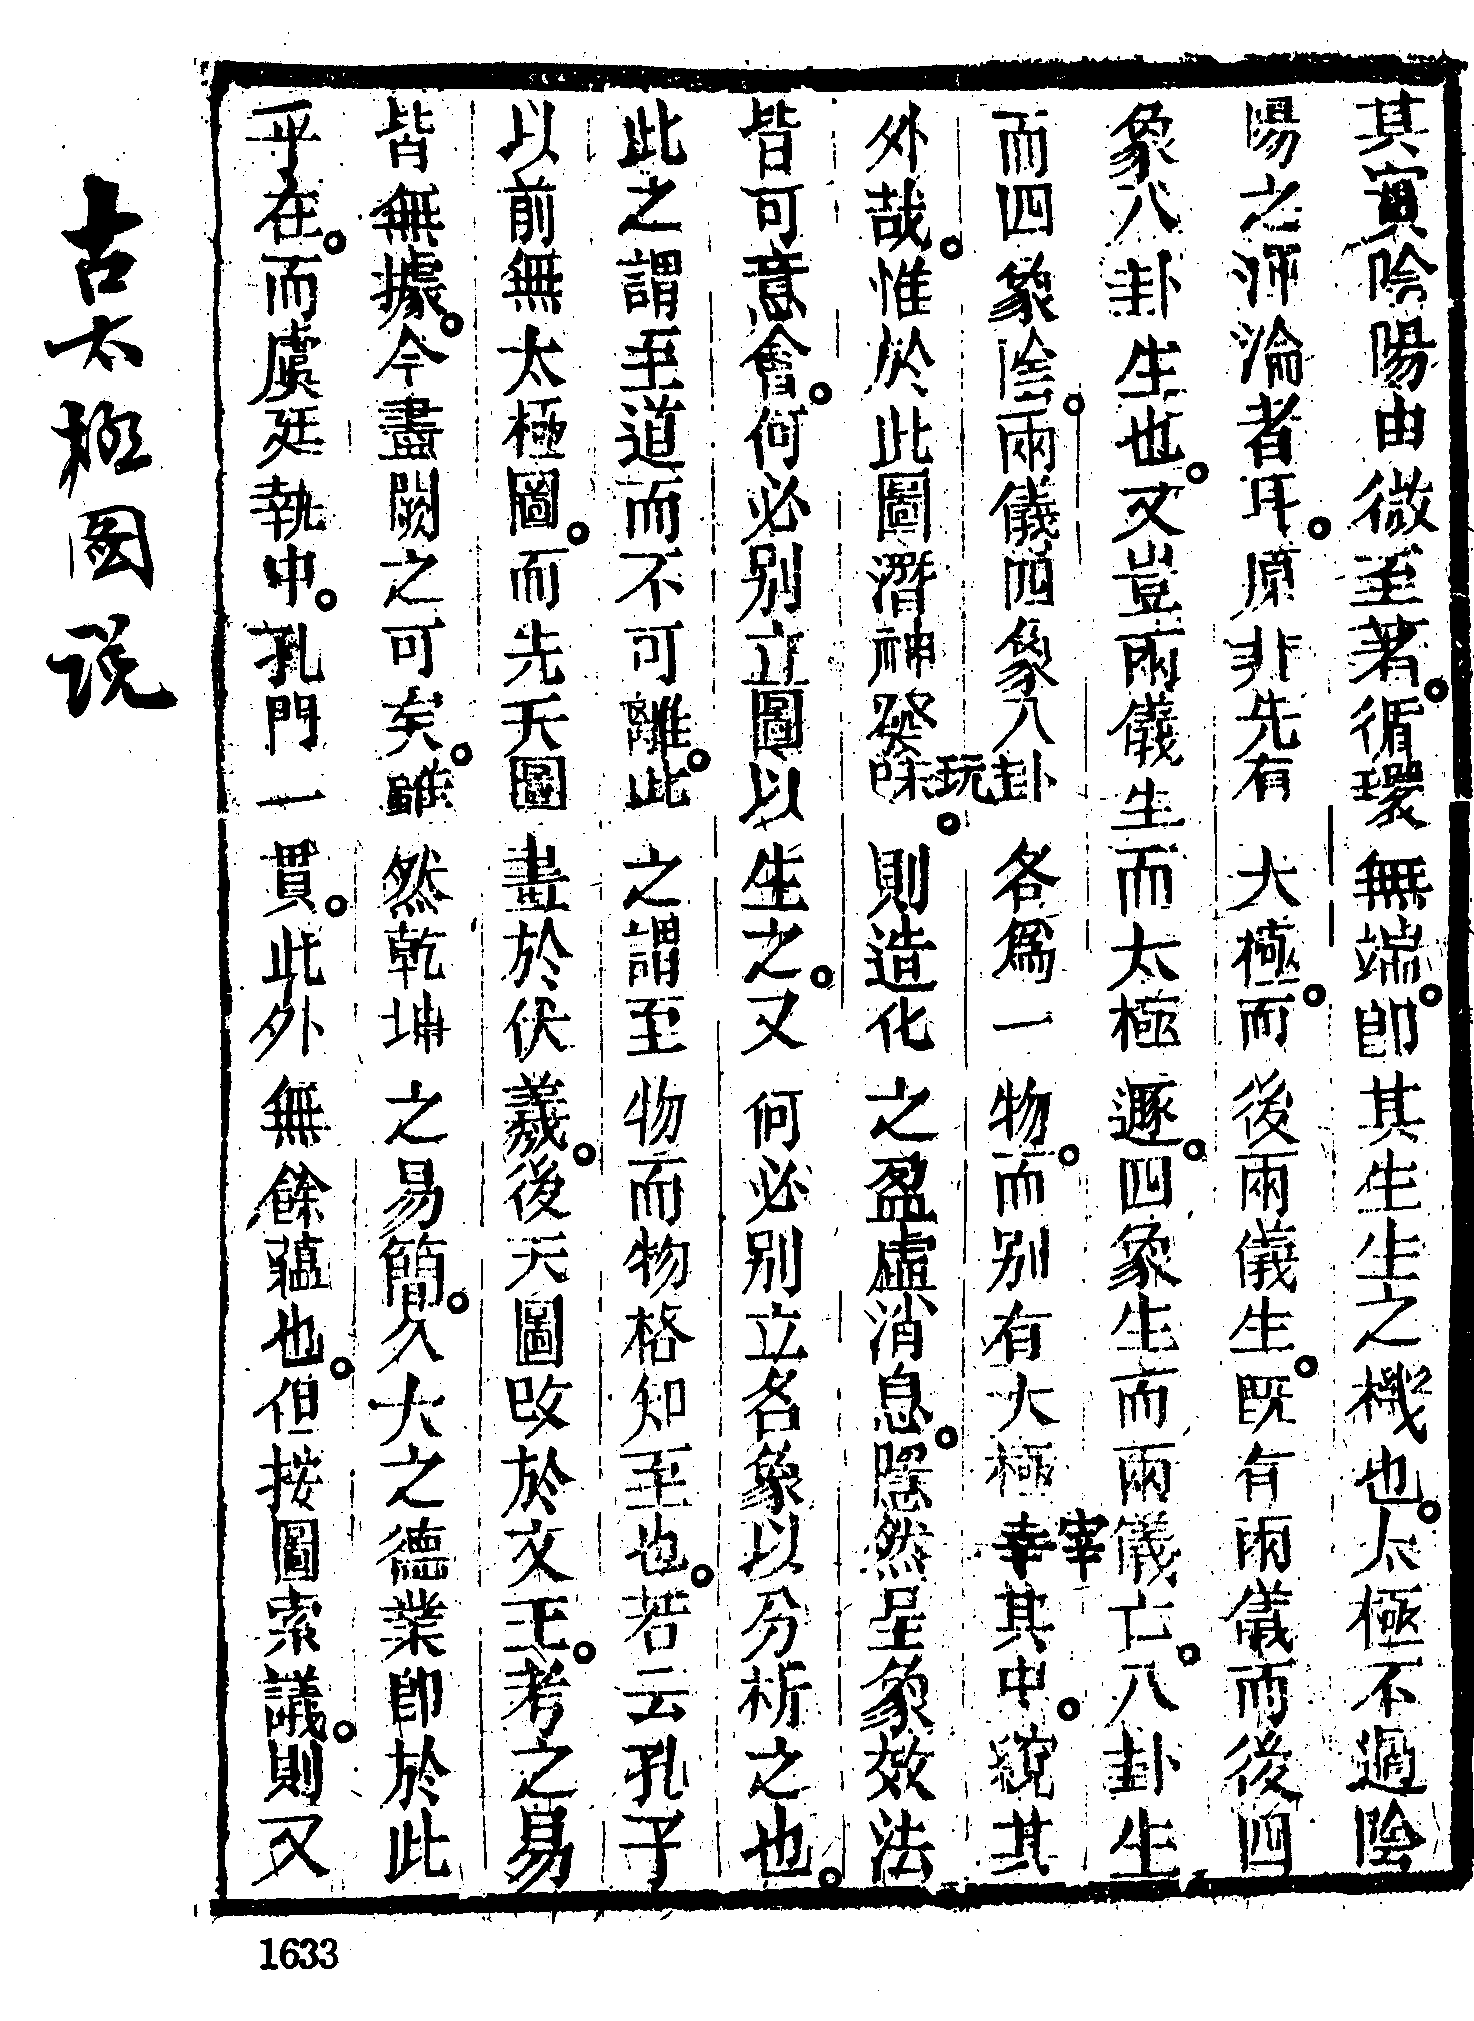 其實陰陽由微至著循環無端即其生生之機也太極不過陰
陽之渾淪者耳原非先有太極而後兩儀生既有兩儀而後四
象八卦生也又豈兩儀生而太極遯四象生而兩儀亡八卦生
而四象陰兩儀四象八卦各爲一物而别有太極宰其中統其
外哉惟於此圖潛神玩味則造化之盈虛消息隱然呈象效法
皆可意會何必别立圖以生之又何必别立名象以分析之也
此之謂至道而不可離此之謂至物而物格知至也若云孔子
以前無太極圖而先天圖畫於伏羲後天圖改於文王考之易
皆無據今盡闕之可矣雖然乾坤之易簡久大之德業即於此
乎在而虞廷執中孔門一貫此外無餘蘊也但按圖索議則又
玩
宰
古太極图说
1633